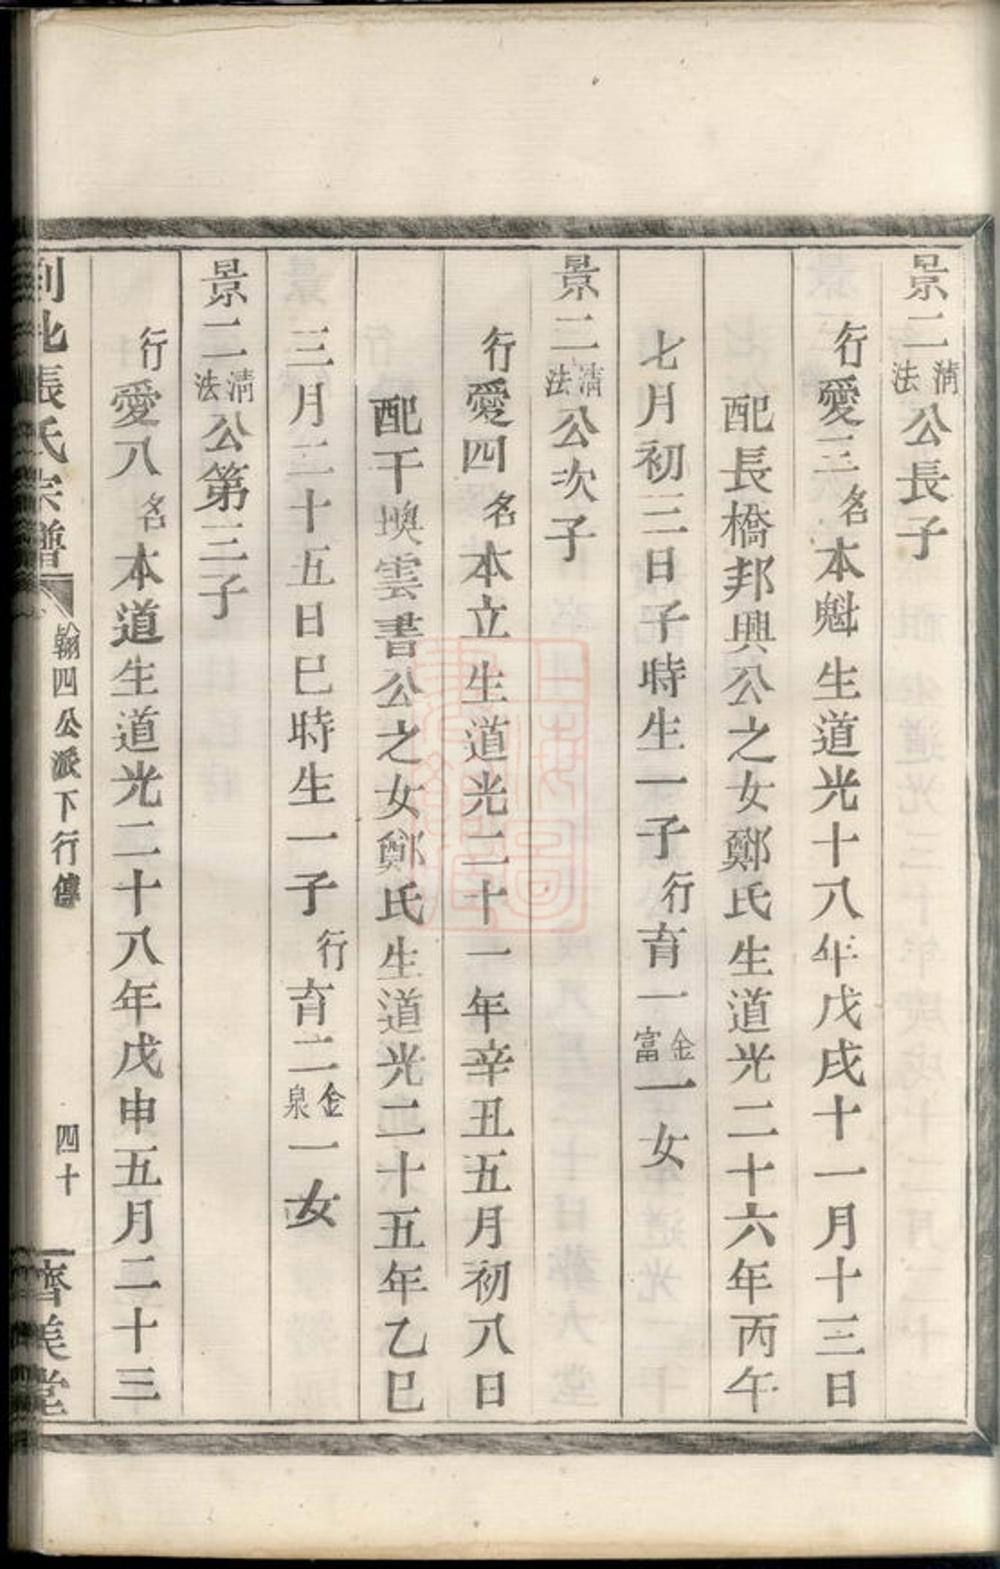 景二清法公長子
行愛三名本魁生道光十八年戊戌十一月十三日
配長橋邦興公之女鄭氏生道光二十六年丙午
七月初三日子時生一子行育一金富一女
景二清法公次子
行愛四名本立生道光二十一年辛丑五月初八日
配干墺雲書公之女鄭氏生道光二十五年乙巳
三月二十五日巳時生一子行育二金泉一女
景二清法公第三子
行愛八名本道生道光二十八年戊申五月二十三
張氏宗譜
翰四公派下行傳
四十
齊美堂